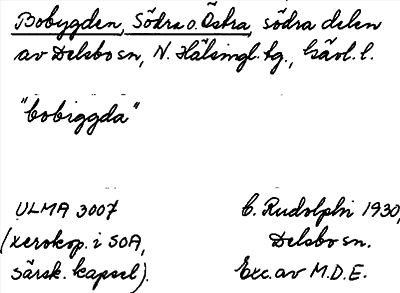 Bobygden, Södra o. Östra, södra delen
av Delsbo sn, N. Hälsingl. tg., Gävl. l.
"bobiggda"
ULMA 3007
(xerokop. i SOA,
särsk. kapsel).
C. Rudolphi 1930,
Delsbo sn.
Exc. av M.D.E.